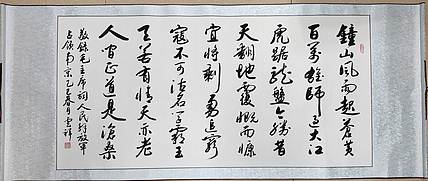 鐘山風雨起蒼黄
百萬雄師过大江
虎踞龍盤今勝昔
天翻地覆慨而慷
宜將剩勇追窮
寇不可沽名学霸王
天若有情天亦老
人间正道是滄桑
敬錄毛主席詞人民解放軍
占领南京春月